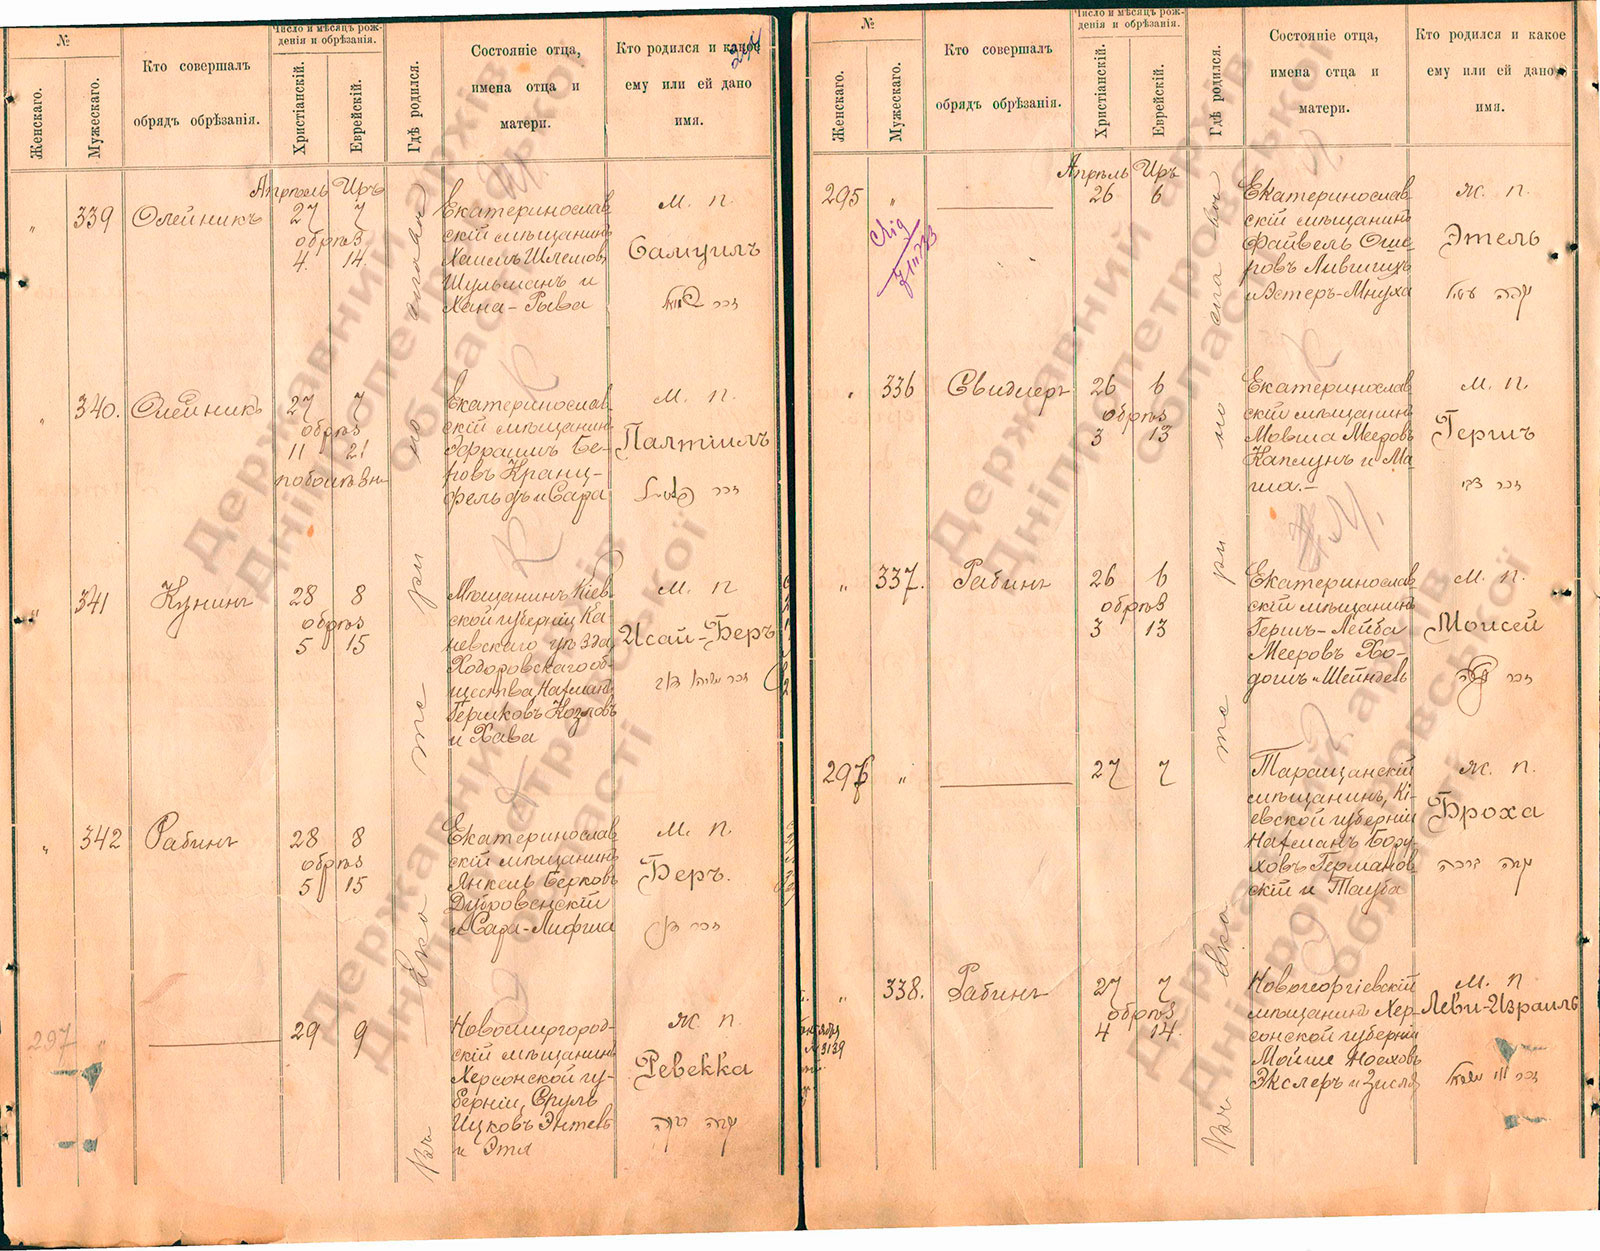 №
Женскаго.
Мужескаго.
Кто совершалъ
обрядъ обрѣзанія.
Число и мѣсяцъ рож-
денія и обрѣзанія.
Христіанскій.
Еврейскій.
Гдѣ родился.
Состояніе отца,
имена отца и
матери.
Кто родился и какое
ему или ей дано
имя.
Апрѣль Иръ
" 339 Олейникъ 27 7
обрѣз
4 14
Екатеринослав
скій мѣщанинъ
Хаимъ Шлемов
Шульманъ и
Хана-Рыва
М. п.
Самуилъ
זכר
" 340. Олейникъ 27 7
обрѣз
11 21
Екатеринослав
скій мѣщанинъ
Эфраимъ Бе-
ровъ Кранц-
фельдъ и Сара
М. п.
Палтіилъ
זכר
" 341 Кунинъ 28 8
обрѣз
5 15
Мѣщанинъ Кіев
ской губерніи Ка-
невскаго уѣзда
Ходоровскаго об-
щества Нахман
Гершковъ Козловъ
и Хава
М. п
Исай-Беръ
זכר
" 342 Рабинъ 28 8
обрѣз
5 15
Екатеринослав
скій мѣщанинъ
Янкель Берковъ
Дубровенскій
и Сара-Лифша
М. п.
Беръ.
זכר
297 " 29 9
Новомиргород-
скій мѣщанинъ
Херсонской гу-
берніи, Сруль
Ицковъ Энтевъ
и Этя
Ж. п.
Ревекка
נקבה רבקה
№
Женскаго.
Мужескаго.
Кто совершалъ
обрядъ обрѣзанія.
Число и мѣсяцъ рож-
денія и обрѣзанія.
Христіанскій.
Еврейскій.
Гдѣ родился.
Состояніе отца,
имена отца и
матери.
Кто родился и какое
ему или ей дано
имя.
Апрѣль Иръ
295 " 26 6
Екатеринослав
скій мѣщанинъ
Файвель Оше-
ровъ Лившицъ
и Эстеръ-Мнуха
Ж. п.
Этель
נקבה
" 336 Свидлеръ 26 6
обрѣз
3 13
Екатеринослав
скій мѣщанинъ
Мовша Мееровъ
Каплунъ и Ма-
ша.-
М. п.
Гершъ
זכר צבי
" 337. Рабинъ 26 6
обрѣз
3 13
Екатеринослав
скій мѣщанинъ
Гершъ-Лейба
Мееровъ Хо-
дошъ и Шейндель
М. п.
Моисей
זכר משה
296 " 27 7
Таращанскій
мѣщанинъ, Кі-
евской губерніи
Нахманъ Бору-
ховъ Германов
скій и Тауба
Ж. п.
Броха
נקבה ברכה
" 338. Рабинъ 27 7
обрѣз
4 14.
Новогеоргіевскій
мѣщанинъ Хер-
сонской губерніи
Мойше Носховъ
Экслеръ и Зисля
М. п
Леви-Израиль
זכר לוי ישראל
Державний архів
Дніпропетровської
області